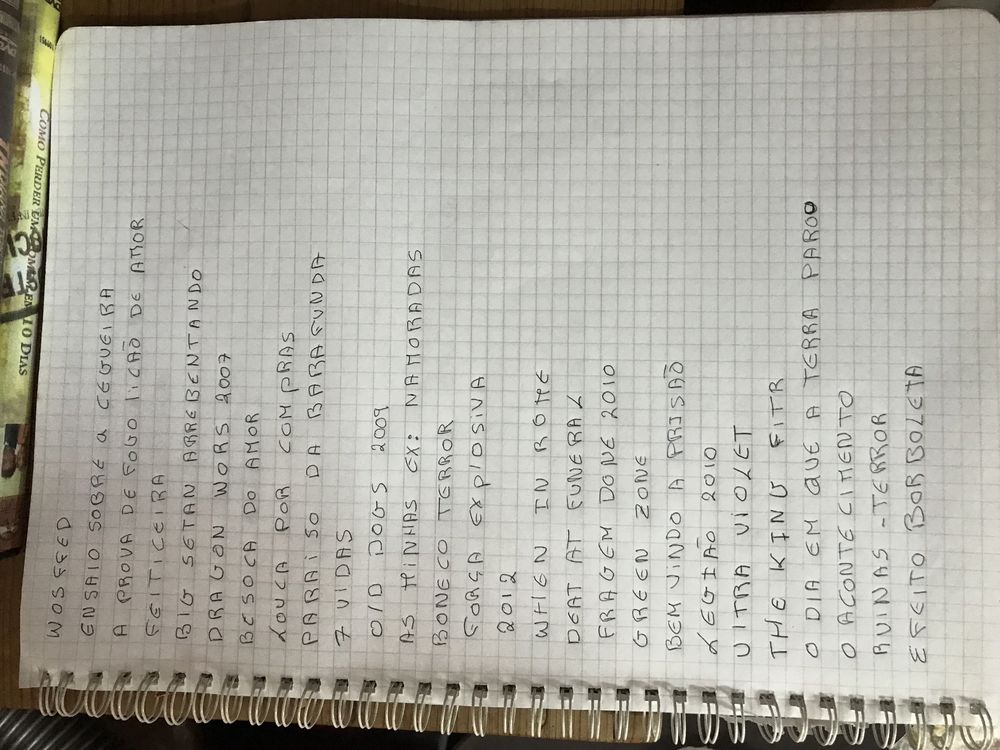 WOSFEED
ENSAIO SOBRE a CEGUEIRA
A PROVA DE FOGO LICÃO DE AMOR
FEITICEIRA
BIG SETAN ARREBENTANDO
DRAGON WORS 2007
BESOCA DO AMOR
LOUCA POR COMPRAS
PARAISO DA BARAFUNDA
7 VIDAS
O/D DOGS 2009
AS MINHAS EX: NAMORADAS
BONECO TERROR
FORÇA EXPLOSIVA
2012
WHEN IN ROME
DEAT AT FUNERAL
FRAGEM DONE 2010
GREEN ZONE
BEM VINDO A PRISAÕ
LEGIÃO 2010
UITRA VIOLET
THE KING FITR
O DIA EM QUE A TERRA PAROU
O ACONTECIMENTO
RUINAS - TERROR
EFEITO BORBOLETA
COMO PERDER UM HOMEM EM 10 DIAS